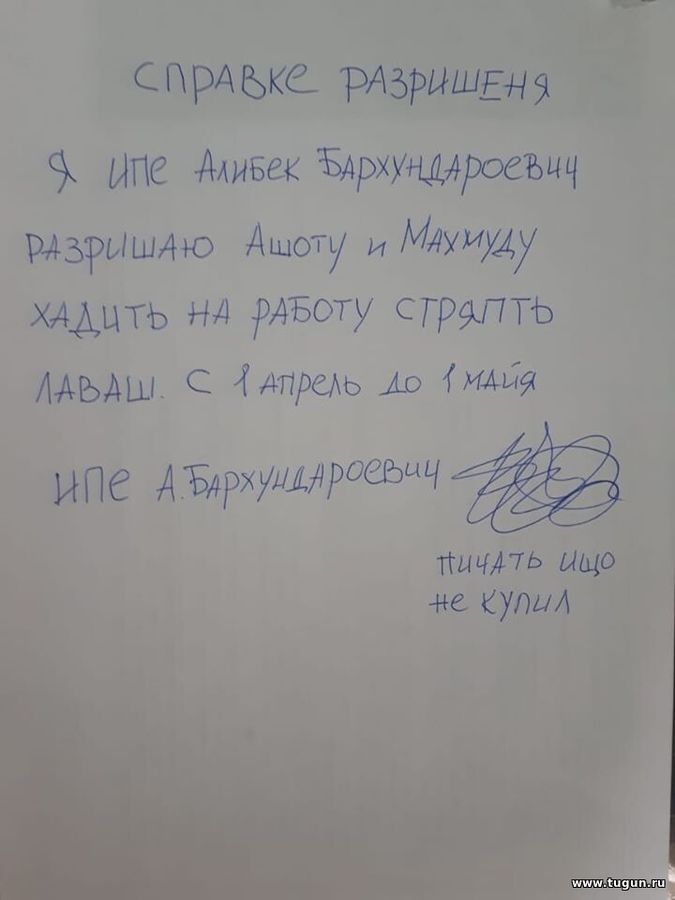 СПРАВКЕ РАЗРИШЕНЯ
Я ИПЕ АЛИБЕК БАРХУНДАРОЕВИЧ
РАЗРИШАЮ АШОТУ И МАХМУДУ
ХАДИТЬ НА РАБОТУ СТРЯПТЬ
ЛАВАШ. С 1 АПРЕЛЬ ДО 1 МАЙЯ
ИПЕ А.БАРХУНДАРОЕВИЧ
ПИЧАТЬ ИЩО
НЕ КУПИЛ
www.tugun.ru